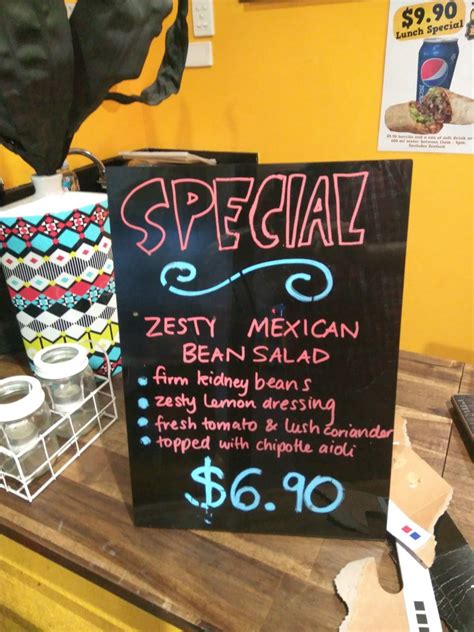 $9.90
Lunch Special
pepsi
SPECIAL
ZESTY MEXICAN
BEAN SALAD
firm kidney beans
zesty lemon dressing
fresh tomato & lush coriander
topped with chipotle aioli
$6.90